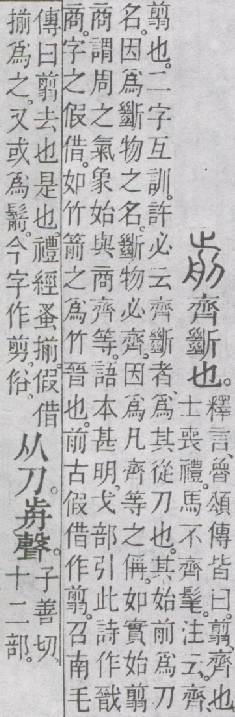 前齊斷也。釋言、魯頌傳皆曰。翦、齊也。
士喪禮。馬不齊髦。注云。齊、
翦也。二字互訓。許必云齊斷者、爲其從刀也。其始前爲刀
名。因爲斷物之名。斷物必齊。因爲凡齊等之偁。如實始翦
商。謂周之氣象始與商齊等。語本甚明。戈部引此詩作戩
商。字之假借。如竹箭之爲竹晉也。前古假借作翦。召南毛
傳曰翦去也是也。禮經蚤揃假借
揃爲之。又或爲鬋。今字作剪。俗。
从刀。歬聲。
子善切。
十二部。